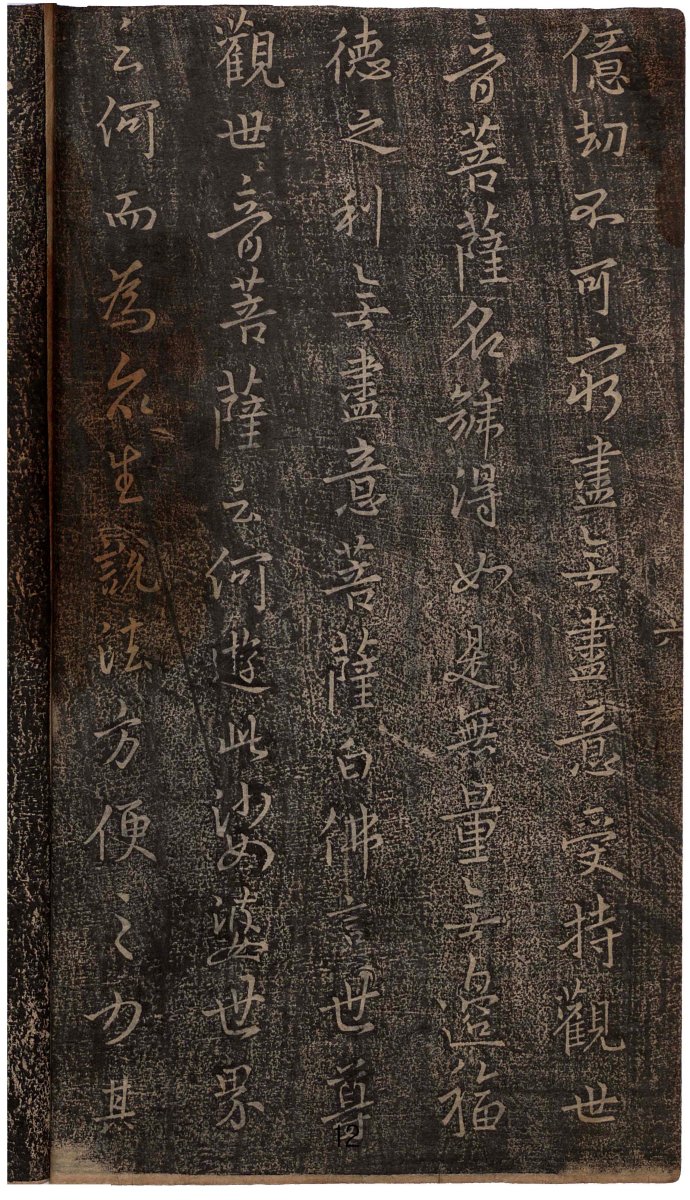 億劫不可窮盡无盡意受持觀世
音菩薩名號得如是無量无邊福
德之利无盡意菩薩白佛言世尊
觀世音菩薩云何遊此娑婆世界
云何而為众生說法方便之力其
六
12